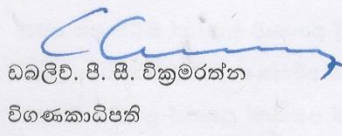 ඩබ්ලිව්. පී. සී. වික්‍රමරත්න
විගණකාධිපති